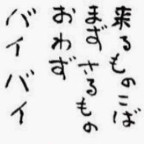 来るものこば
まず さるもの
おわず
バイバイ